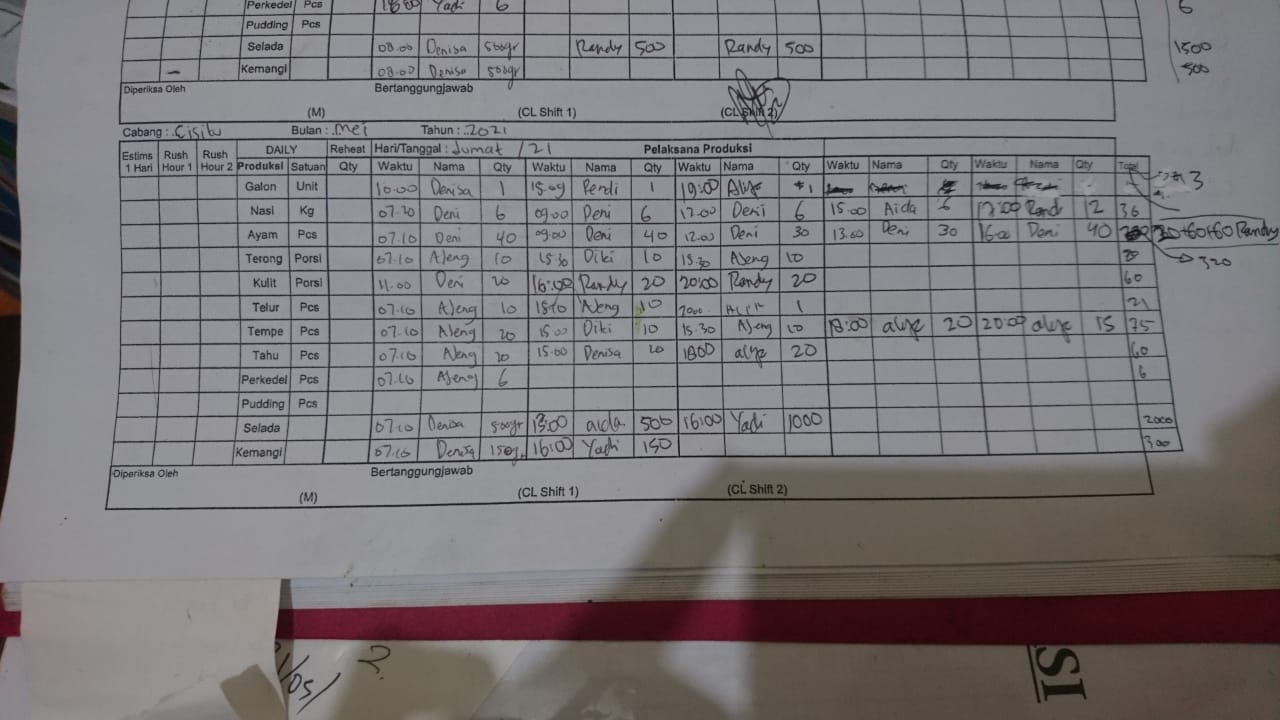 Perkedel Pcs 18.00 Yadi 6 6
Pudding Pcs
Selada 08.00 Denisa 500gr Randy 500 Randy 500 1500
Kemangi 08.00 Denisa 500gr 500
Diperiksa Oleh Bertanggungjawab
(M) (CL Shift 1) (CL Shift 2)
Cabang : Cisitu Bulan : Mei Tahun : 2021
Estims 1 Hari Rush Hour 1 Rush Hour 2 DAILY Reheat Hari/Tanggal : Jumat / 21 Pelaksana Produksi
Produksi Satuan Qty Waktu Nama Qty Waktu Nama Qty Waktu Nama Qty Waktu Nama Qty Waktu Nama Qty Total
Galon Unit 10.00 Denisa 1 15.09 Pendi 1 19:00 1 3
Nasi Kg 07.20 Deni 6 09.00 Deni 6 12.00 Deni 6 15.00 Aida 6 17:00 Randi 12 36
Ayam Pcs 07.10 Deni 40 09.00 Deni 40 12.00 Deni 30 13.00 Deni 30 16.00 Deni 40 20+60+60 Randy
320
Terong Porsi 07.10 Ajeng 10 15.30 Diki 10 15.30 Ajeng 10
Kulit Porsi 11.00 Deni 20 16:00 Randy 20 20:00 Randy 20 60
Telur Pcs 07.10 Ajeng 10 15.10 Ajeng 10 2000 1 21
Tempe Pcs 07.10 Ajeng 20 15.00 Diki 10 15.30 Ajeng 10 18:00 20 20:00 15 75
Tahu Pcs 07.10 Ajeng 20 15.00 Denisa 20 1800 20 60
Perkedel Pcs 07.10 Ajeng 6 6
Pudding Pcs
Selada 07.10 Denisa 500gr 13:00 aida 500 16:00 Yadi 1000 2000
Kemangi 07.10 Denisa 150g 16:00 Yadi 150 300
Diperiksa Oleh Bertanggungjawab
(M) (CL Shift 1) (CL Shift 2)
SI